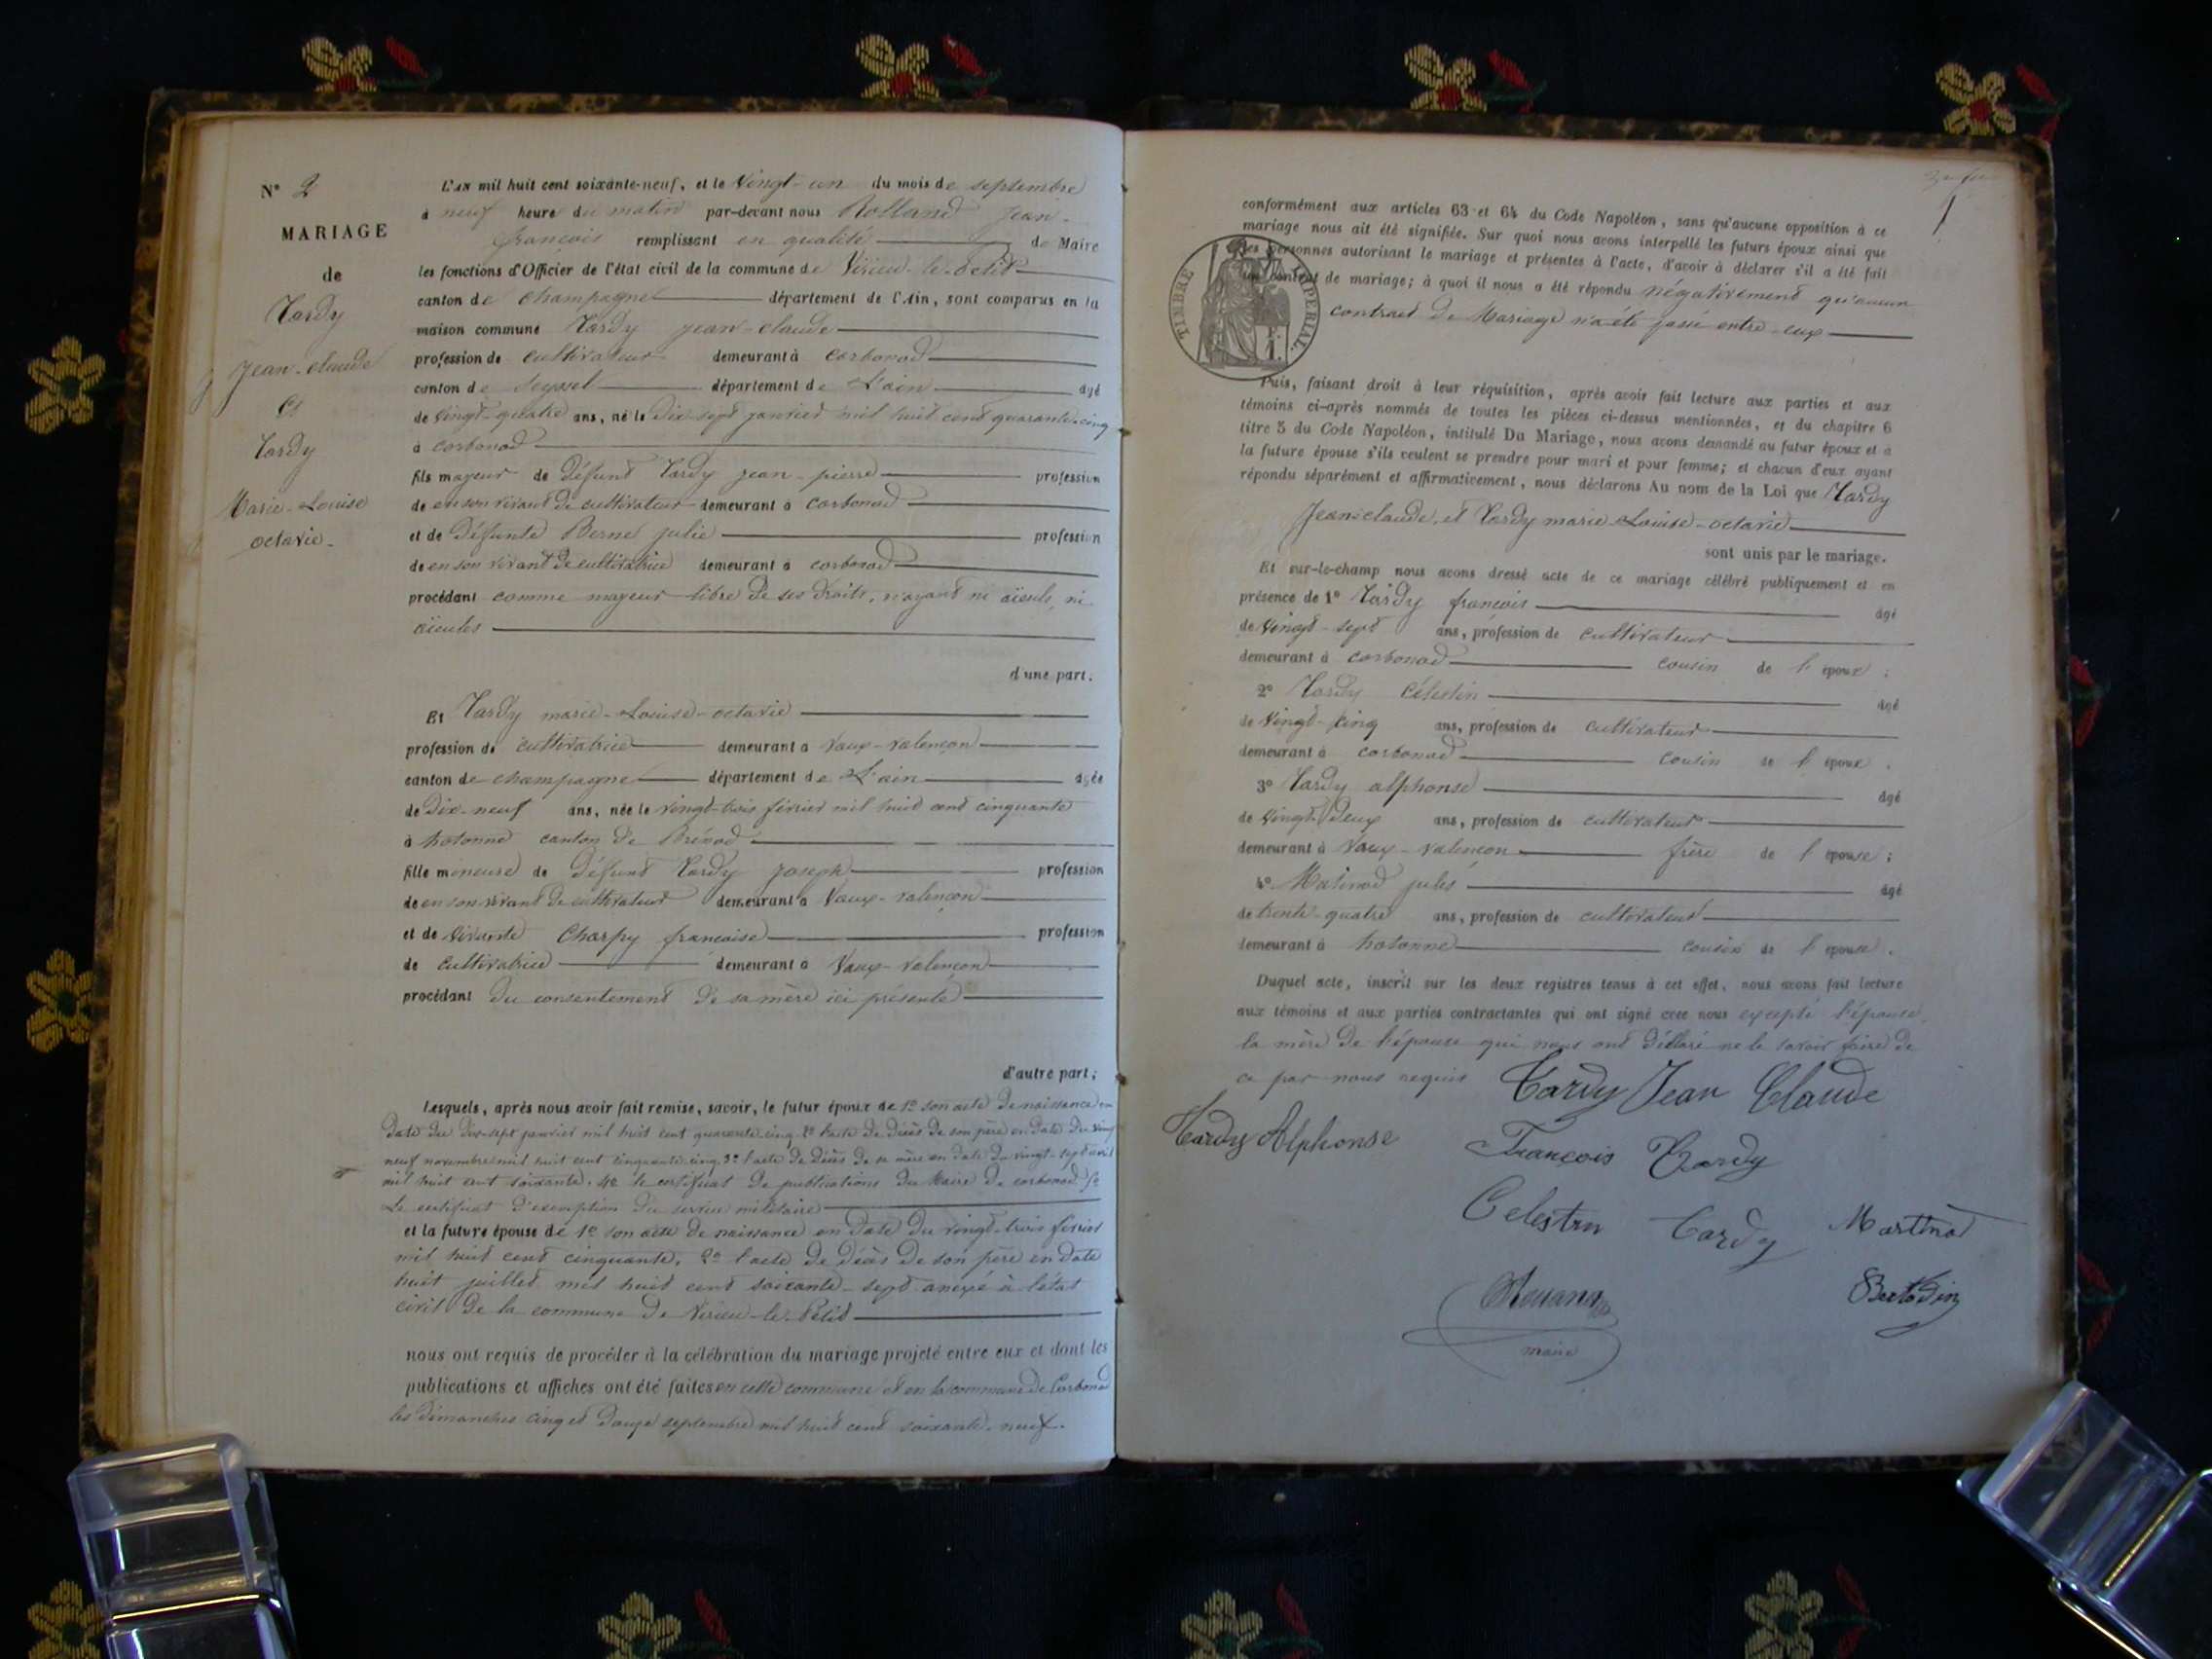 N° 2
MARIAGE
de
Tardy
Jean-claude
Et
Tardy
Marie-Louise
octavie
L'AN mil huit cent soixante-neuf, et le vingt-un du mois de septembre
à neuf heure du matin par-devant nous Rolland Jean-
francois remplissant en qualité de Maire
les fonctions d'Officier de l'état civil de la commune de Virieu-le-petit
canton de champagne département de l'Ain, sont comparus en la
maison commune Tardy jean-claude
profession de cultivateur demeurant à corbonod
canton de Seyssel département de L'ain âgé
de vingt-quatre ans, né le dix-sept janvier mil huit cent quarante-cinq
à corbonod
fils majeur de défunt Tardy jean-pierre profession
de en son vivant de cultivateur demeurant à corbonod
et de défunte Berne julie profession
de en son vivant de cultivatrice demeurant à corbonod
procédant comme majeur libre de ses droits, n'ayant ni aïeuls, ni
aïeules
d'une part.
Et Tardy marie-Louise-octavie
profession de cultivatrice demeurant à Vaux-valençon
canton de champagne département de L'ain âgée
de dix-neuf ans, née le vingt-trois février mil huit cent cinquante
à hotonne canton de Brénod
fille mineure de défunt Tardy joseph profession
de en son vivant de cultivateur demeurant à Vaux-valençon
et de vivante Charpy francoise profession
de cultivatrice demeurant à Vaux-valençon
procédant du consentement de sa mère ici présente
d'autre part;
Lesquels, après nous avoir fait remise, savoir, le futur époux de 1° son acte de naissance en
date du dix-sept janvier mil huit cent quarante cinq 2° l'acte de décès de son père en date du vingt
neuf novembre mil huit cent cinquante cinq 3° l'acte de décès de sa mère en date du vingt-sept avril
mil huit cent soixante. 4° le certificat de publications du Maire de corbonod 5°
Le certificat d'exemption du service militaire
et la future épouse de 1° son acte de naissance en date du vingt-trois février
mil huit cent cinquante, 2° l'acte de décès de son père en date
huit juillet mil huit cent soixante-sept anexé à l'état
civil de la commune de Virieu-le-Petit
nous ont requis de procéder à la célébration du mariage projeté entre eux et dont les
publications et affiches ont été faites en cette commune et en la commune de Corbonod
les dimanches cinq et douze septembre mil huit cent soixante-neuf.
conformément aux articles 63 et 64 du Code Napoléon, sans qu'aucune opposition à ce
mariage nous ait été signifiée. Sur quoi nous avons interpellé les futurs époux ainsi que
les personnes autorisant le mariage et présentes à l'acte, d'avoir à déclarer s'il a été fait
un contrat de mariage; à quoi il nous a été répondu négativement qu'aucun
contract de Mariage n'a été passé entre-eux
TIMBRE IMPERIAL
Puis, faisant droit à leur réquisition, après avoir fait lecture aux parties et aux
témoins ci-après nommés de toutes les pièces ci-dessus mentionnées, et du chapitre 6
titre 5 du Code Napoléon, intitulé Du Mariage, nous avons demandé au futur époux et à
la future épouse s'ils veulent se prendre pour mari et pour femme; et chacun d'eux ayant
répondu séparément et affirmativement, nous déclarons Au nom de la Loi que Tardy
Jean-claude, et Tardy marie-Louise-octavie
sont unis par le mariage.
Et sur-le-champ nous avons dressé acte de ce mariage célébré publiquement et en
présence de 1° Tardy francois âgé
de vingt-sept ans, profession de cultivateur
demeurant à corbonod cousin de l'époux;
2° Tardy célestin âgé
de vingt-cinq ans, profession de cultivateur
demeurant à corbonod cousin de l'époux.
3° Tardy alphonse âgé
de vingt-deux ans, profession de cultivateur
demeurant à Vaux-valençon frère de l'épouse;
4° Matinod jules âgé
de trente-quatre ans, profession de cultivateur
demeurant à hotonne cousin de l'épouse.
Duquel acte, inscrit sur les deux registres tenus à cet effet, nous avons fait lecture
aux témoins et aux parties contractantes qui ont signé avec nous excepté l'épouse,
la mère de l'épouse qui nous ont déclaré ne le savoir faire de
ce par nous requis
Tardy Jean Claude
Tardy Alphonse
François Tardy
Celestin Tardy
Martinod
maire